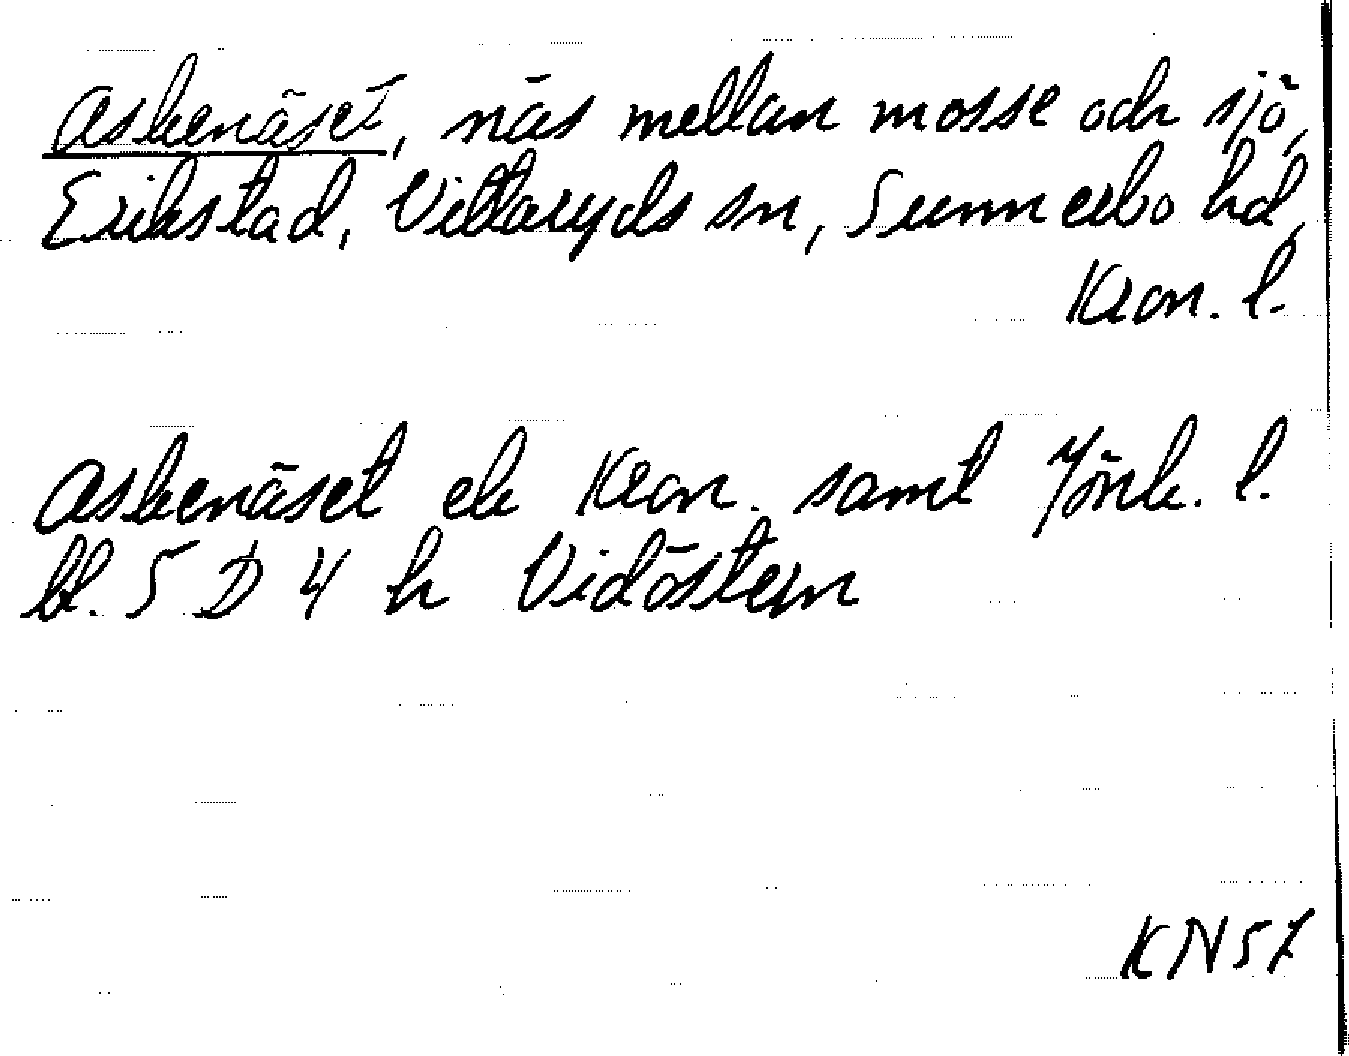 Askenäset, näs mellan mosse och sjö,
Erikstad, Vittaryds sn, Sunnerbo hd,
Kron. l.
Askenäset ek Kron. samt Jönk. l.
bl. 5 D 4 h Vidöstern
KN57